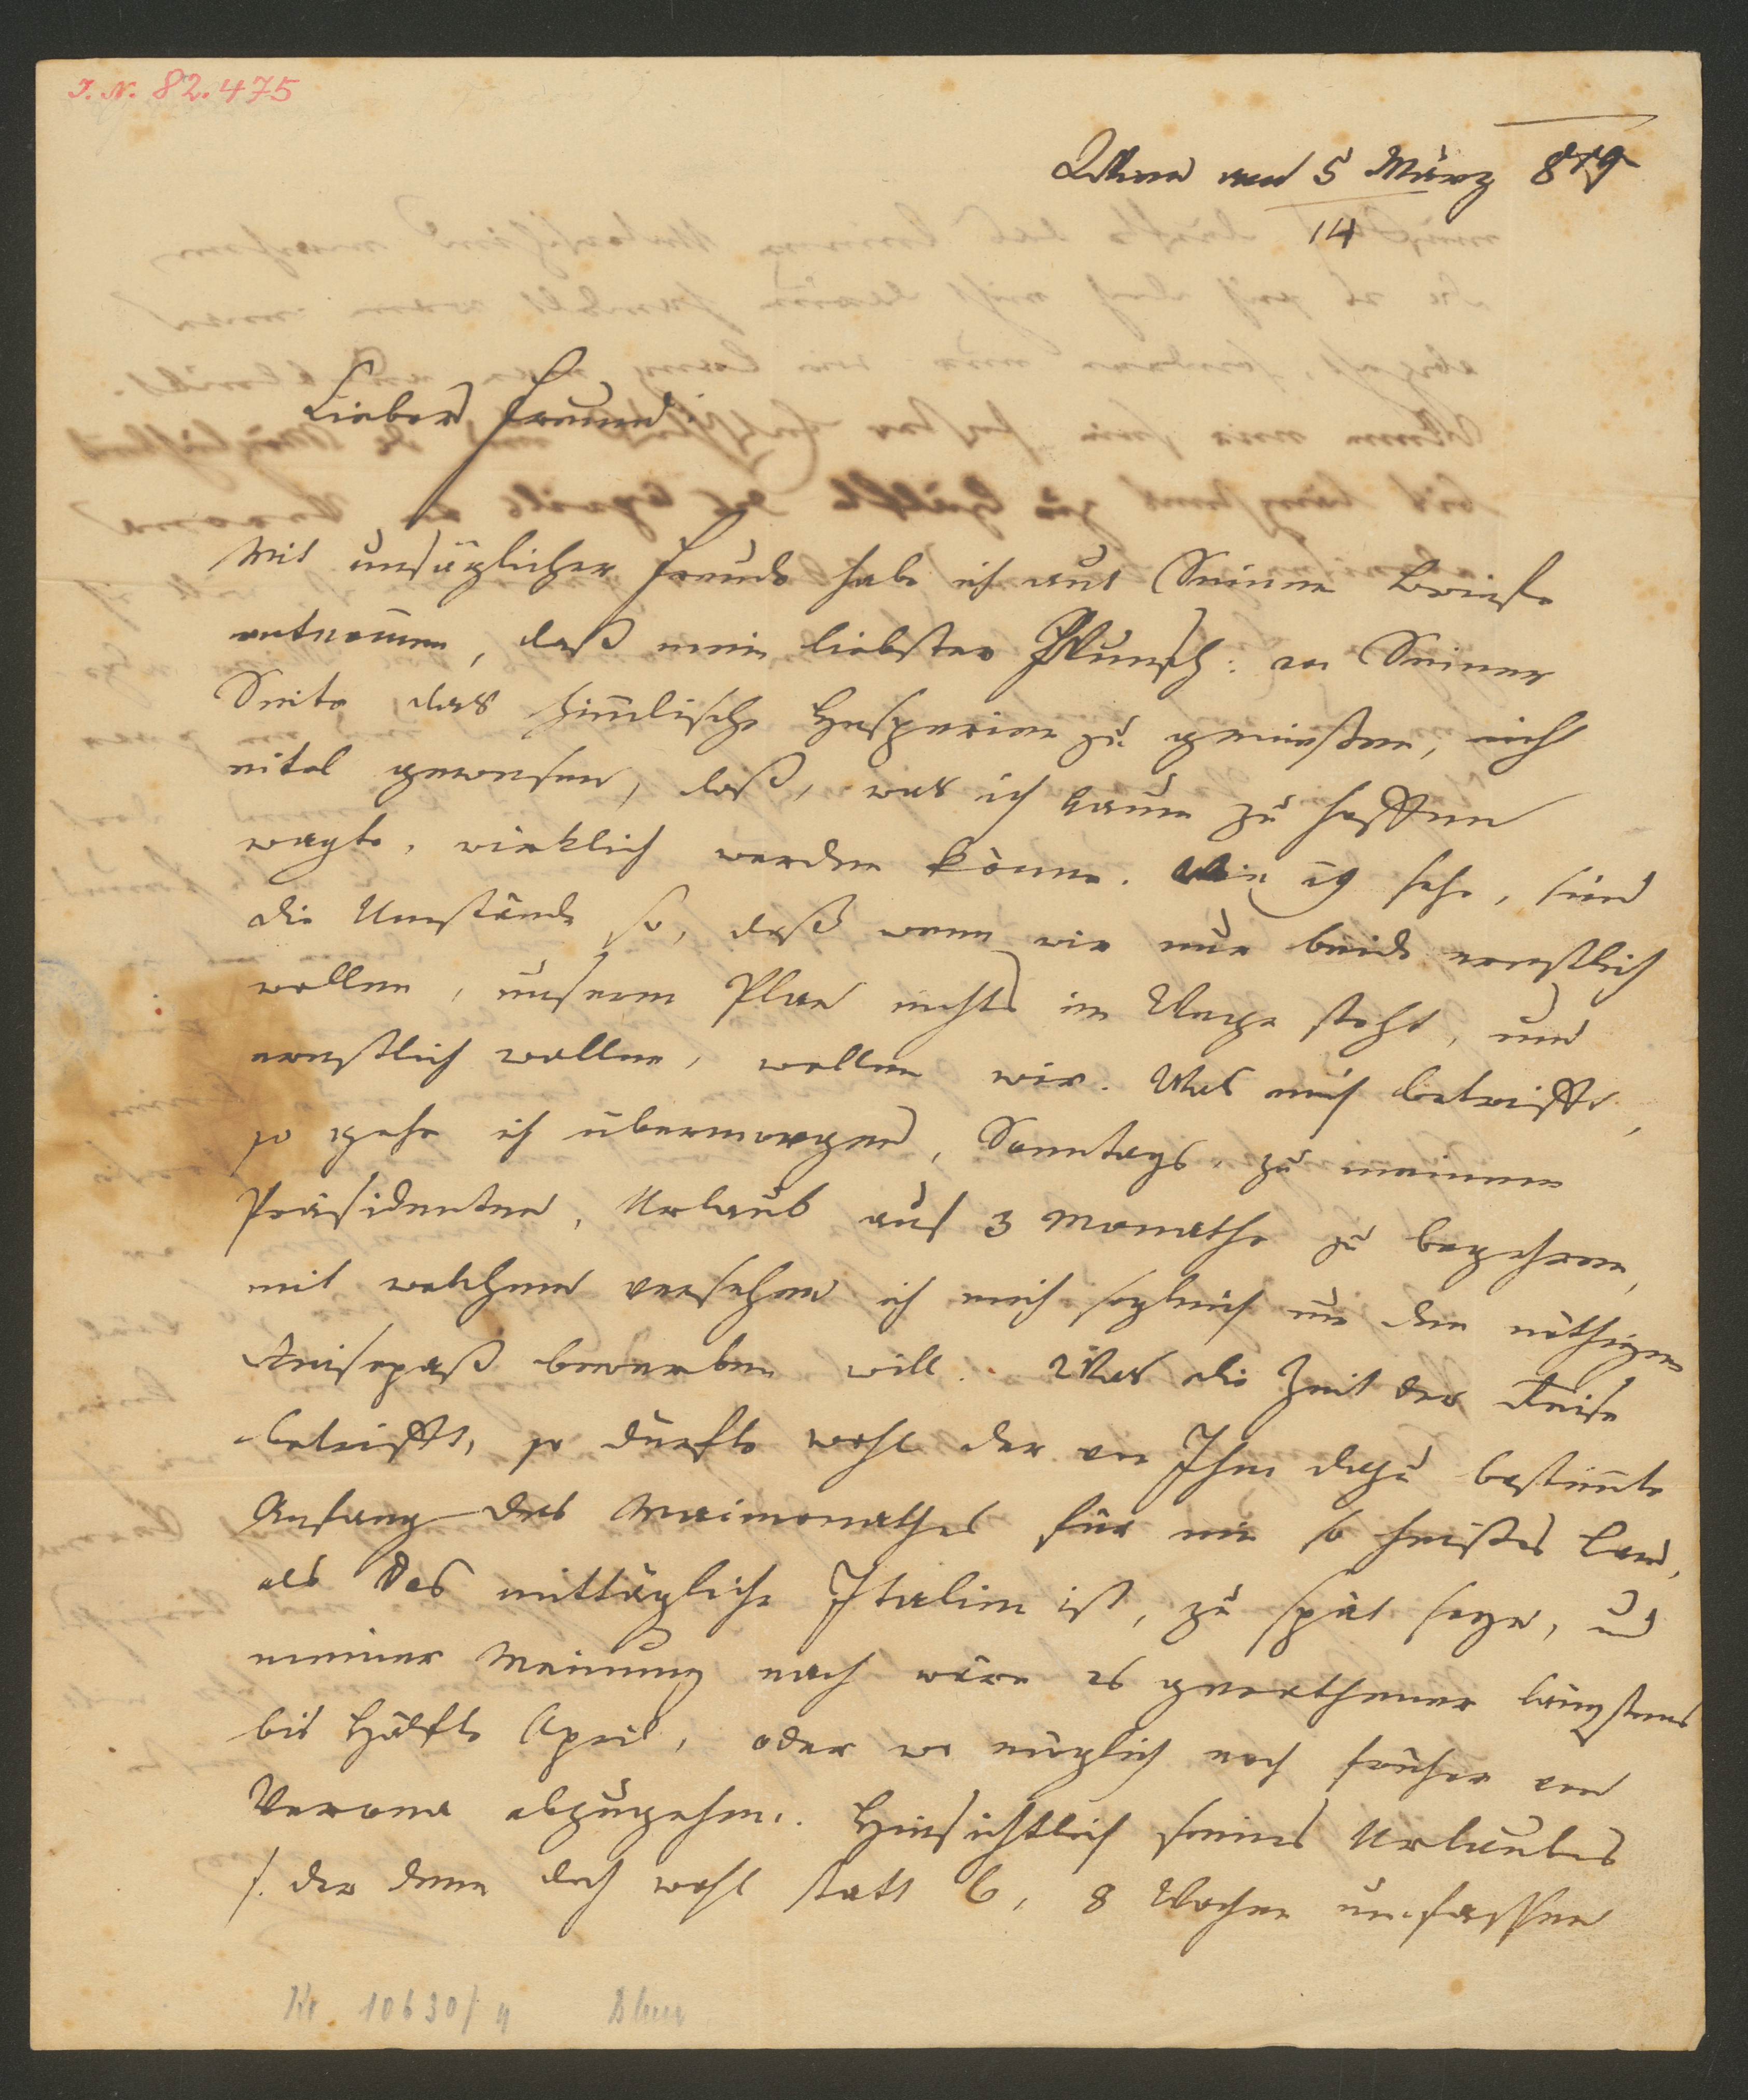 I. N. 82.475
Wien am 5 März 819
14
Lieber Freund!
Mit unsäglicher Freude habe ich aus Deinem Briefe
entnom̄en, daß mein liebster Wunsch: an Deiner
Seite das him̄lische Hesperien zu genießen, nicht
eitel gewesen, daß, was ich kaum zu hoffen
wagte, wirklich werden könne. Wie ich sehe, sind
die Umstände so, daß wenn wir nur beide ernstlich
wollen, unserm Plan nichts im Wege steht, und
ernstlich wollen, wollen wir. Was mich betrifft,
so gehe ich übermorgen, Sonntags, zu meinem
Präsidenten, Urlaub auf 3 Monathe zu begehren,
mit welchem versehen ich mich sogleich um den nöthigen
Reisepaß bewerben will. Was die Zeit der Reise
betrifft, so dürfte wohl der von Ihm dazu bestim̄te
Anfang des Maimonathes für ein so heißes Land,
als das mittägliche Italien ist, zu spät seyn, und
meiner Meinung nach wäre es gerathener längstens
bis Hälfte April, oder wo möglich noch früher von
Verona abzugehen. Hinsichtlich seines Urlaubes
/. der denn doch wohl statt 6, 8 Wochen umfassen
10630/4